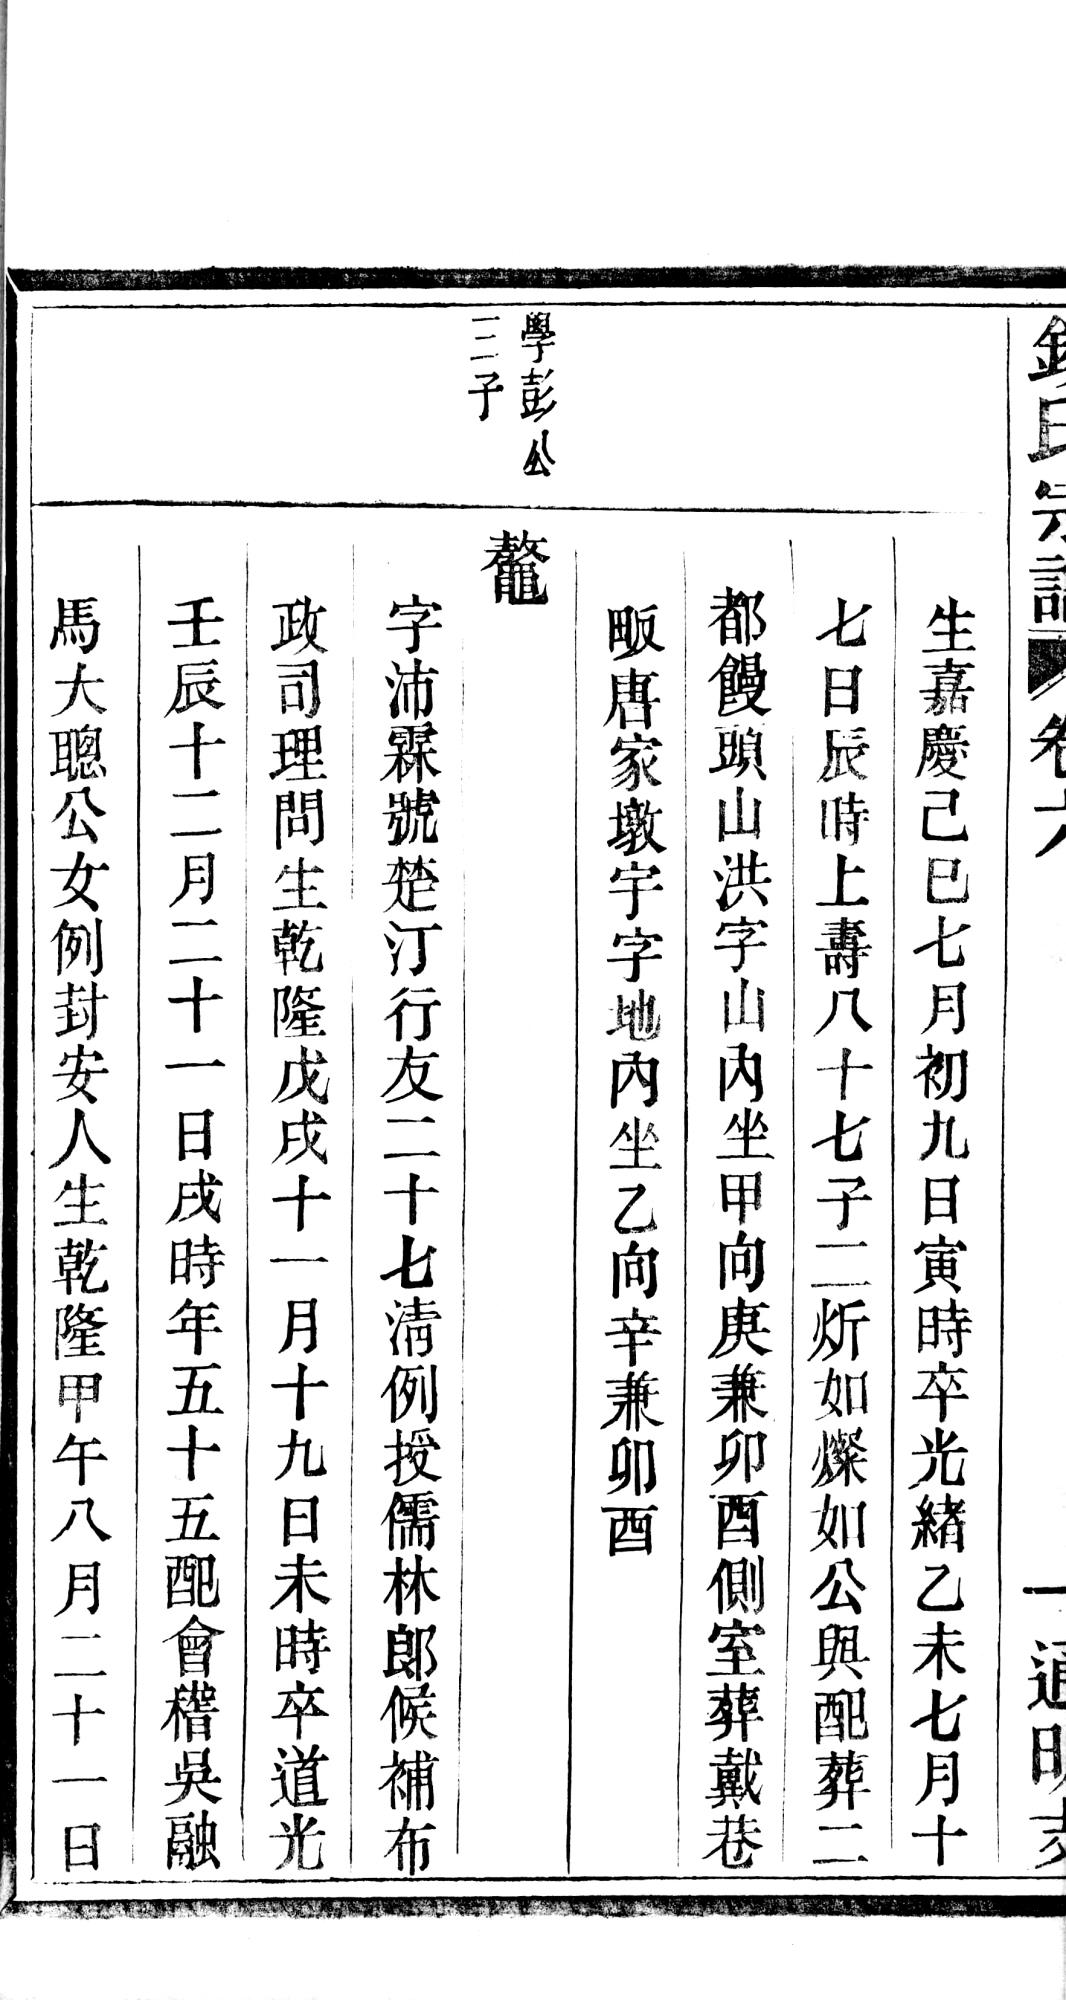 氏宗譜 卷六 一
生嘉慶己巳七月初九日寅時卒光緒乙未七月十
七日辰時上壽八十七子二炘如燦如公與配葬二
都饅頭山洪字山內坐甲向庚兼卯酉側室葬戴巷
畈唐家墩宇字地內坐乙向辛兼卯酉
學彭公
三子
鼇
字沛霖號楚汀行友二十七淸例授儒林郎候補布
政司理問生乾隆戊戌十一月十九日未時卒道光
壬辰十二月二十一日戌時年五十五配會稽吳融
馬大聰公女例封安人生乾隆甲午八月二十一日